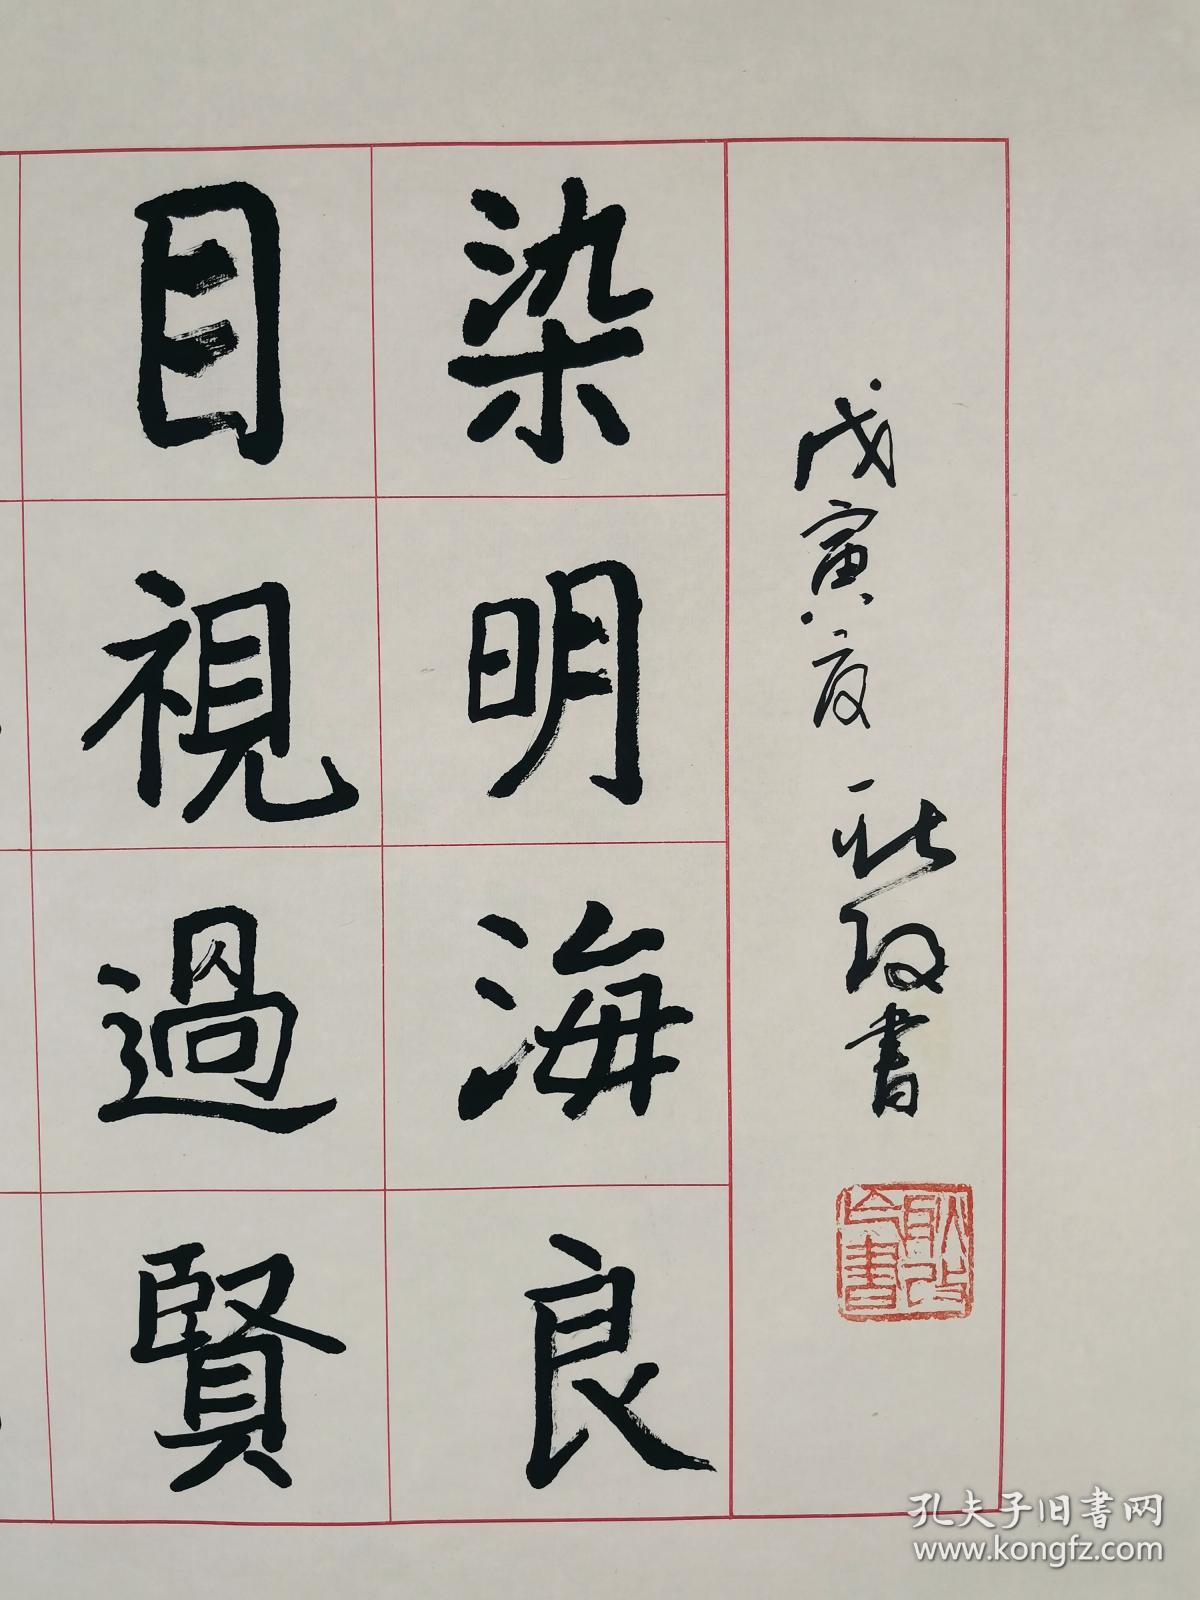 目染
視明
過海
賢良
戊寅夏 耿改書
孔夫子旧书网
www.kongfz.com